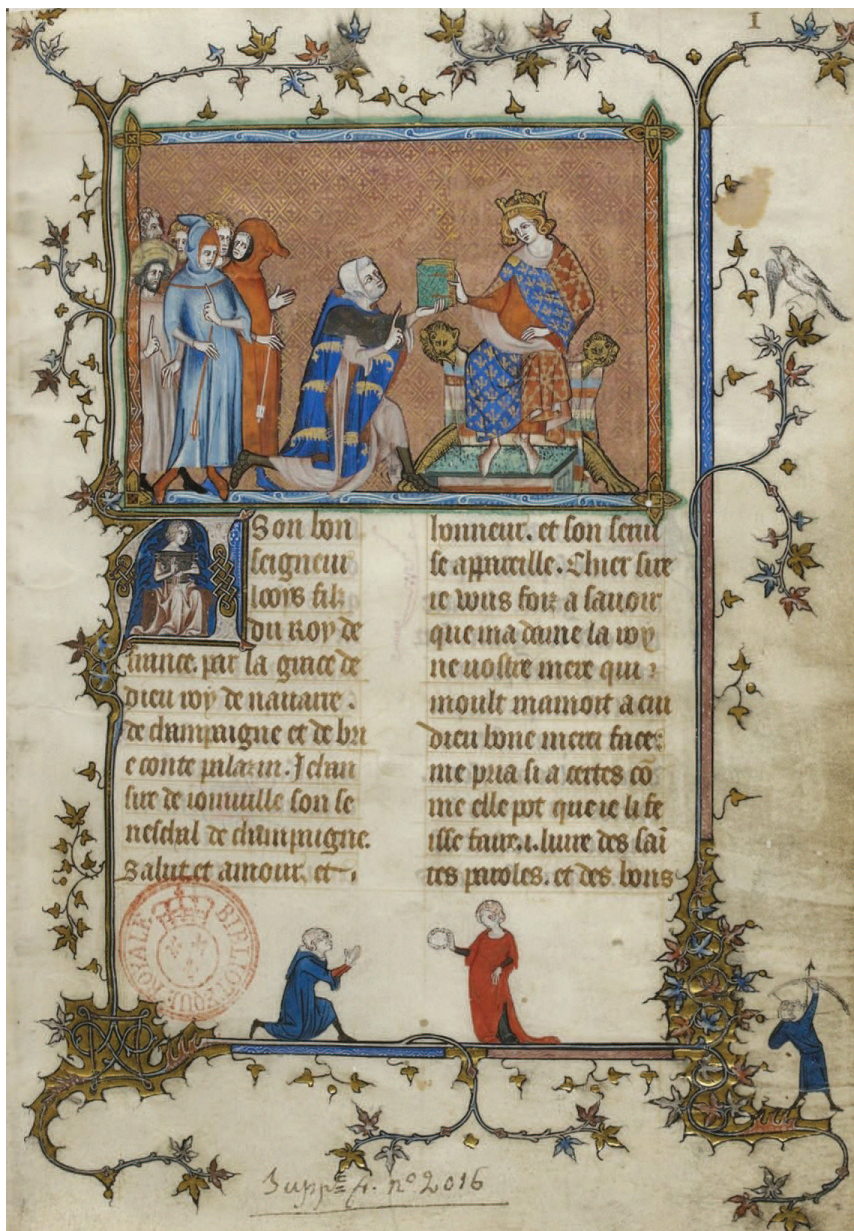 I
A Son bon
seigneur
looys filz
du roy de
france. par la grace de
dieu roy de nauarre.
de champaigne et de bri
e conte palazin. Jehan
sire de ioinuille son se
neschal de champaigne.
Salut et amour. et
honneur. et son seruise
appareille. Chier sire
ie vous foiz a sauoir
que ma dame la roy
ne uostre mere qui
moult mamoit a cui
dieu bone merci face
me pria si a certes co
me elle pot que ie li fe
isse faire .i. liure des sai
tes paroles. et des bons
BIBLIOTHEQUE ROYALE
Suppt. fr. nº 2016